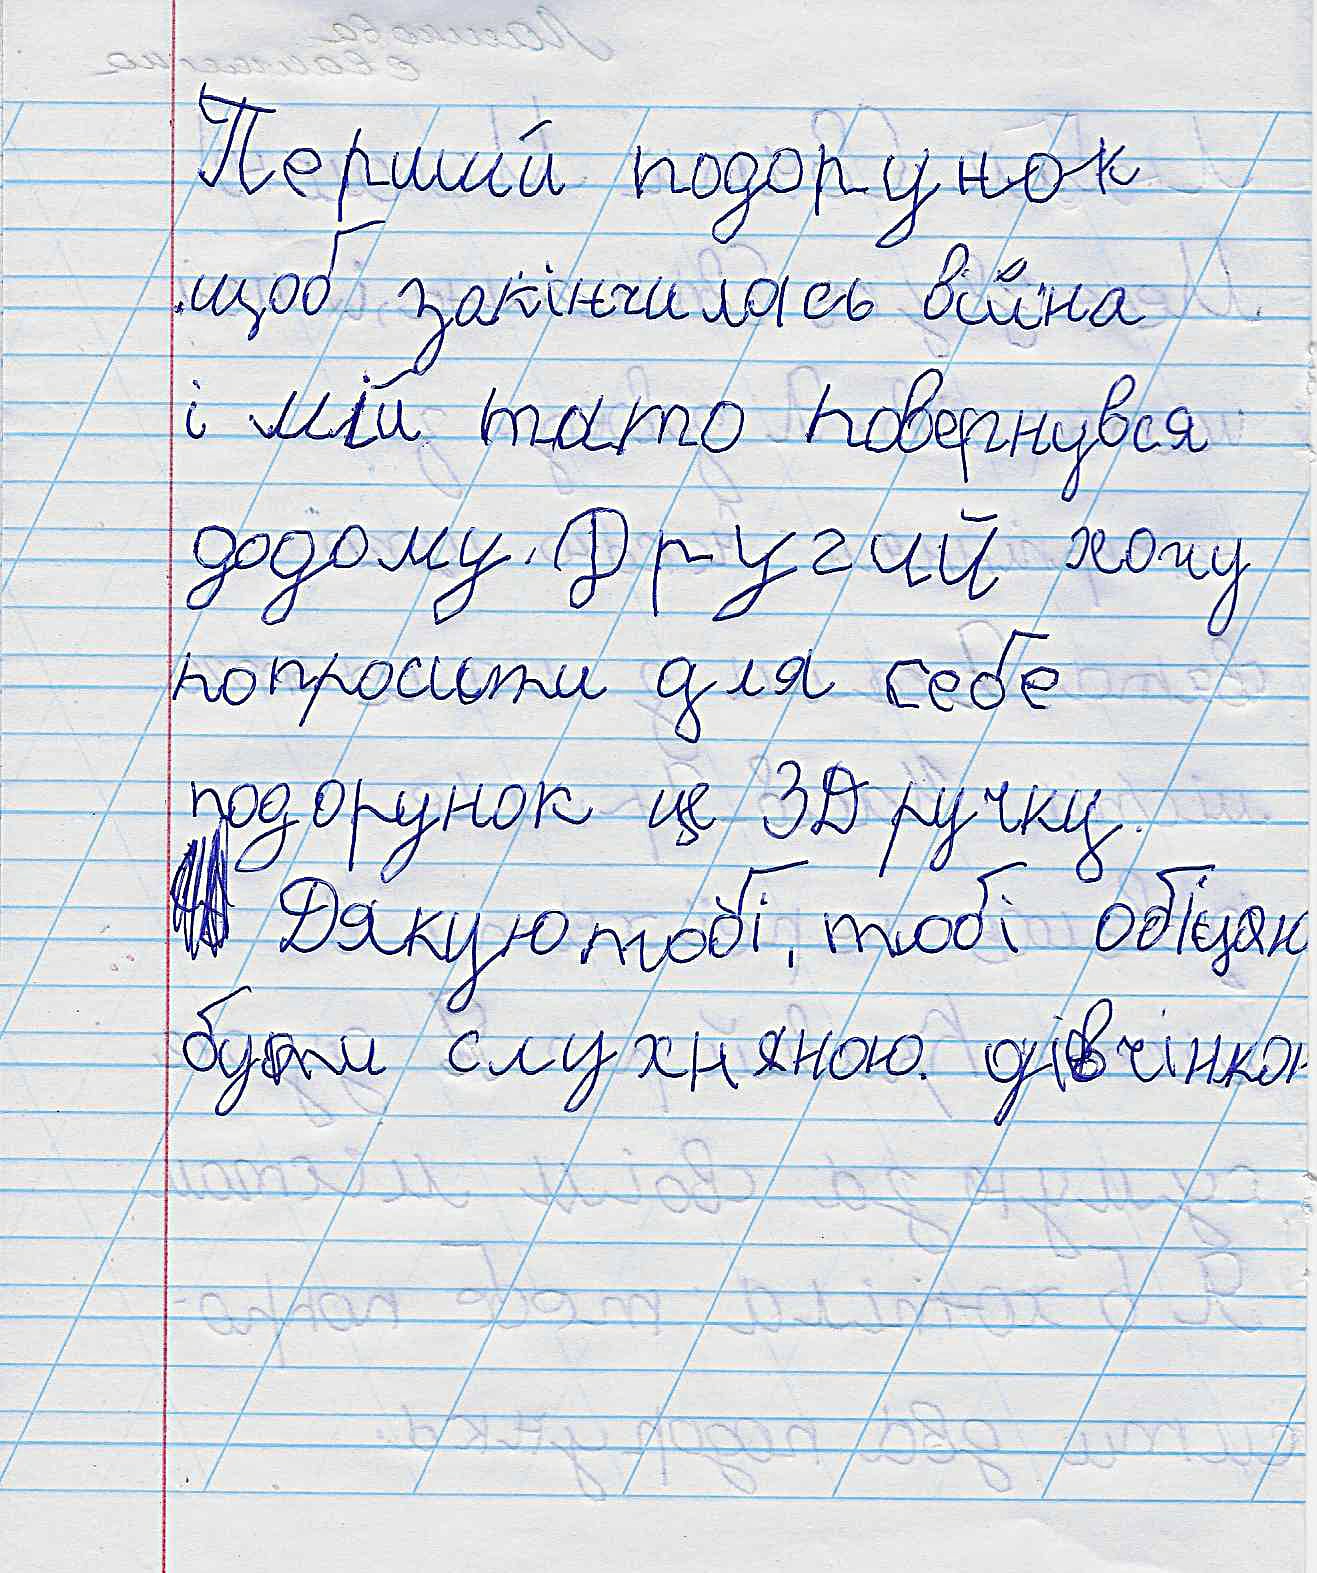 Перший подорунок
щоб закінчилась війна
і мій тато повернувся
додому. Другий хочу
попросити для себе
подорунок це 3D ручку.
Дякую тобі, тобі обіцяю
бути слухняною. дівчінкою